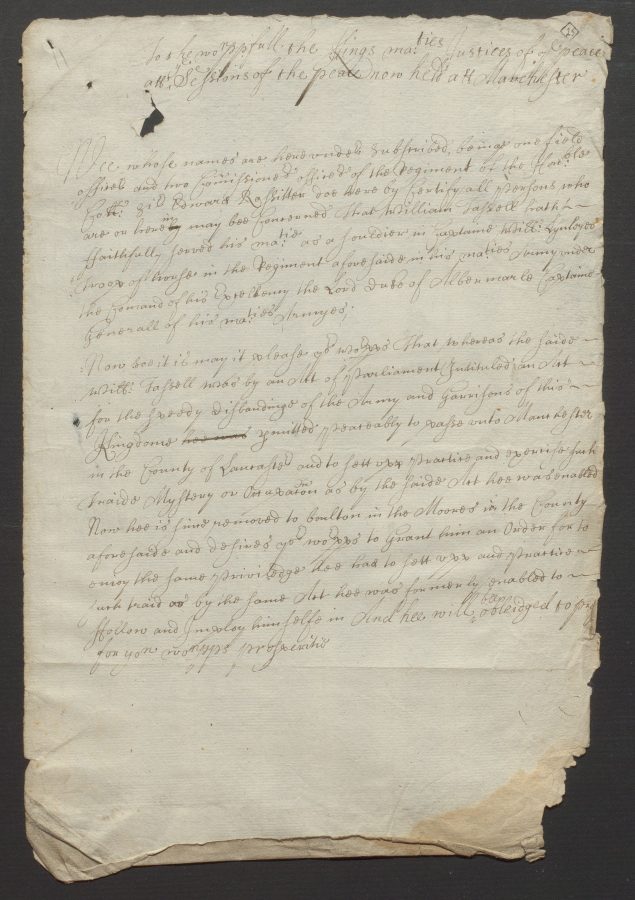 25
To the wo:rppfull the Kings ma:ties Justices of ye peace
att ye Sessions of the peace now held att Manchester
Wee whose names are hereunder Subscribed, being one field
officer and two Comissioned officers of the Regiment of the
Coll: Sir Edward Rossitter doe hereby Certify all persons who
are or herein may bee Concerned That William Tassell hath
ffaithfully served his ma:tie as a souldier in Captaine Will:
troop of horse in the Regiment aforesaide in his ma:ties Army under
the Comand of his Excellency the Lord Duke of Albermarle Captaine
Generall of his ma:ties Armyes;
Now soe it is may it please yor wo:pps That whereas the saide
Will: Tassell was by an Act of Parliament Intituled an Act
for the speedy disbandinge of the Army and Garrisons of this
Kingdome hee was pmitted peaceably to passe unto Manchester
in the County of Lancaster and to sett upp practice and exercise such
traide Mystery or Occupation as by the saide Act hee was enabled
Now hee is since removed to Boulton in the Moores in the County
aforesaide and desires yor wo:pps to Grant him an Order for to
enioy the same priviledge hee had to sett upp and practice
such traid as by the same Act hee was formerly enabled to
ffollow and Imploy himselfe in And hee will bee obleidged to pry
for yor worpps prosperitie